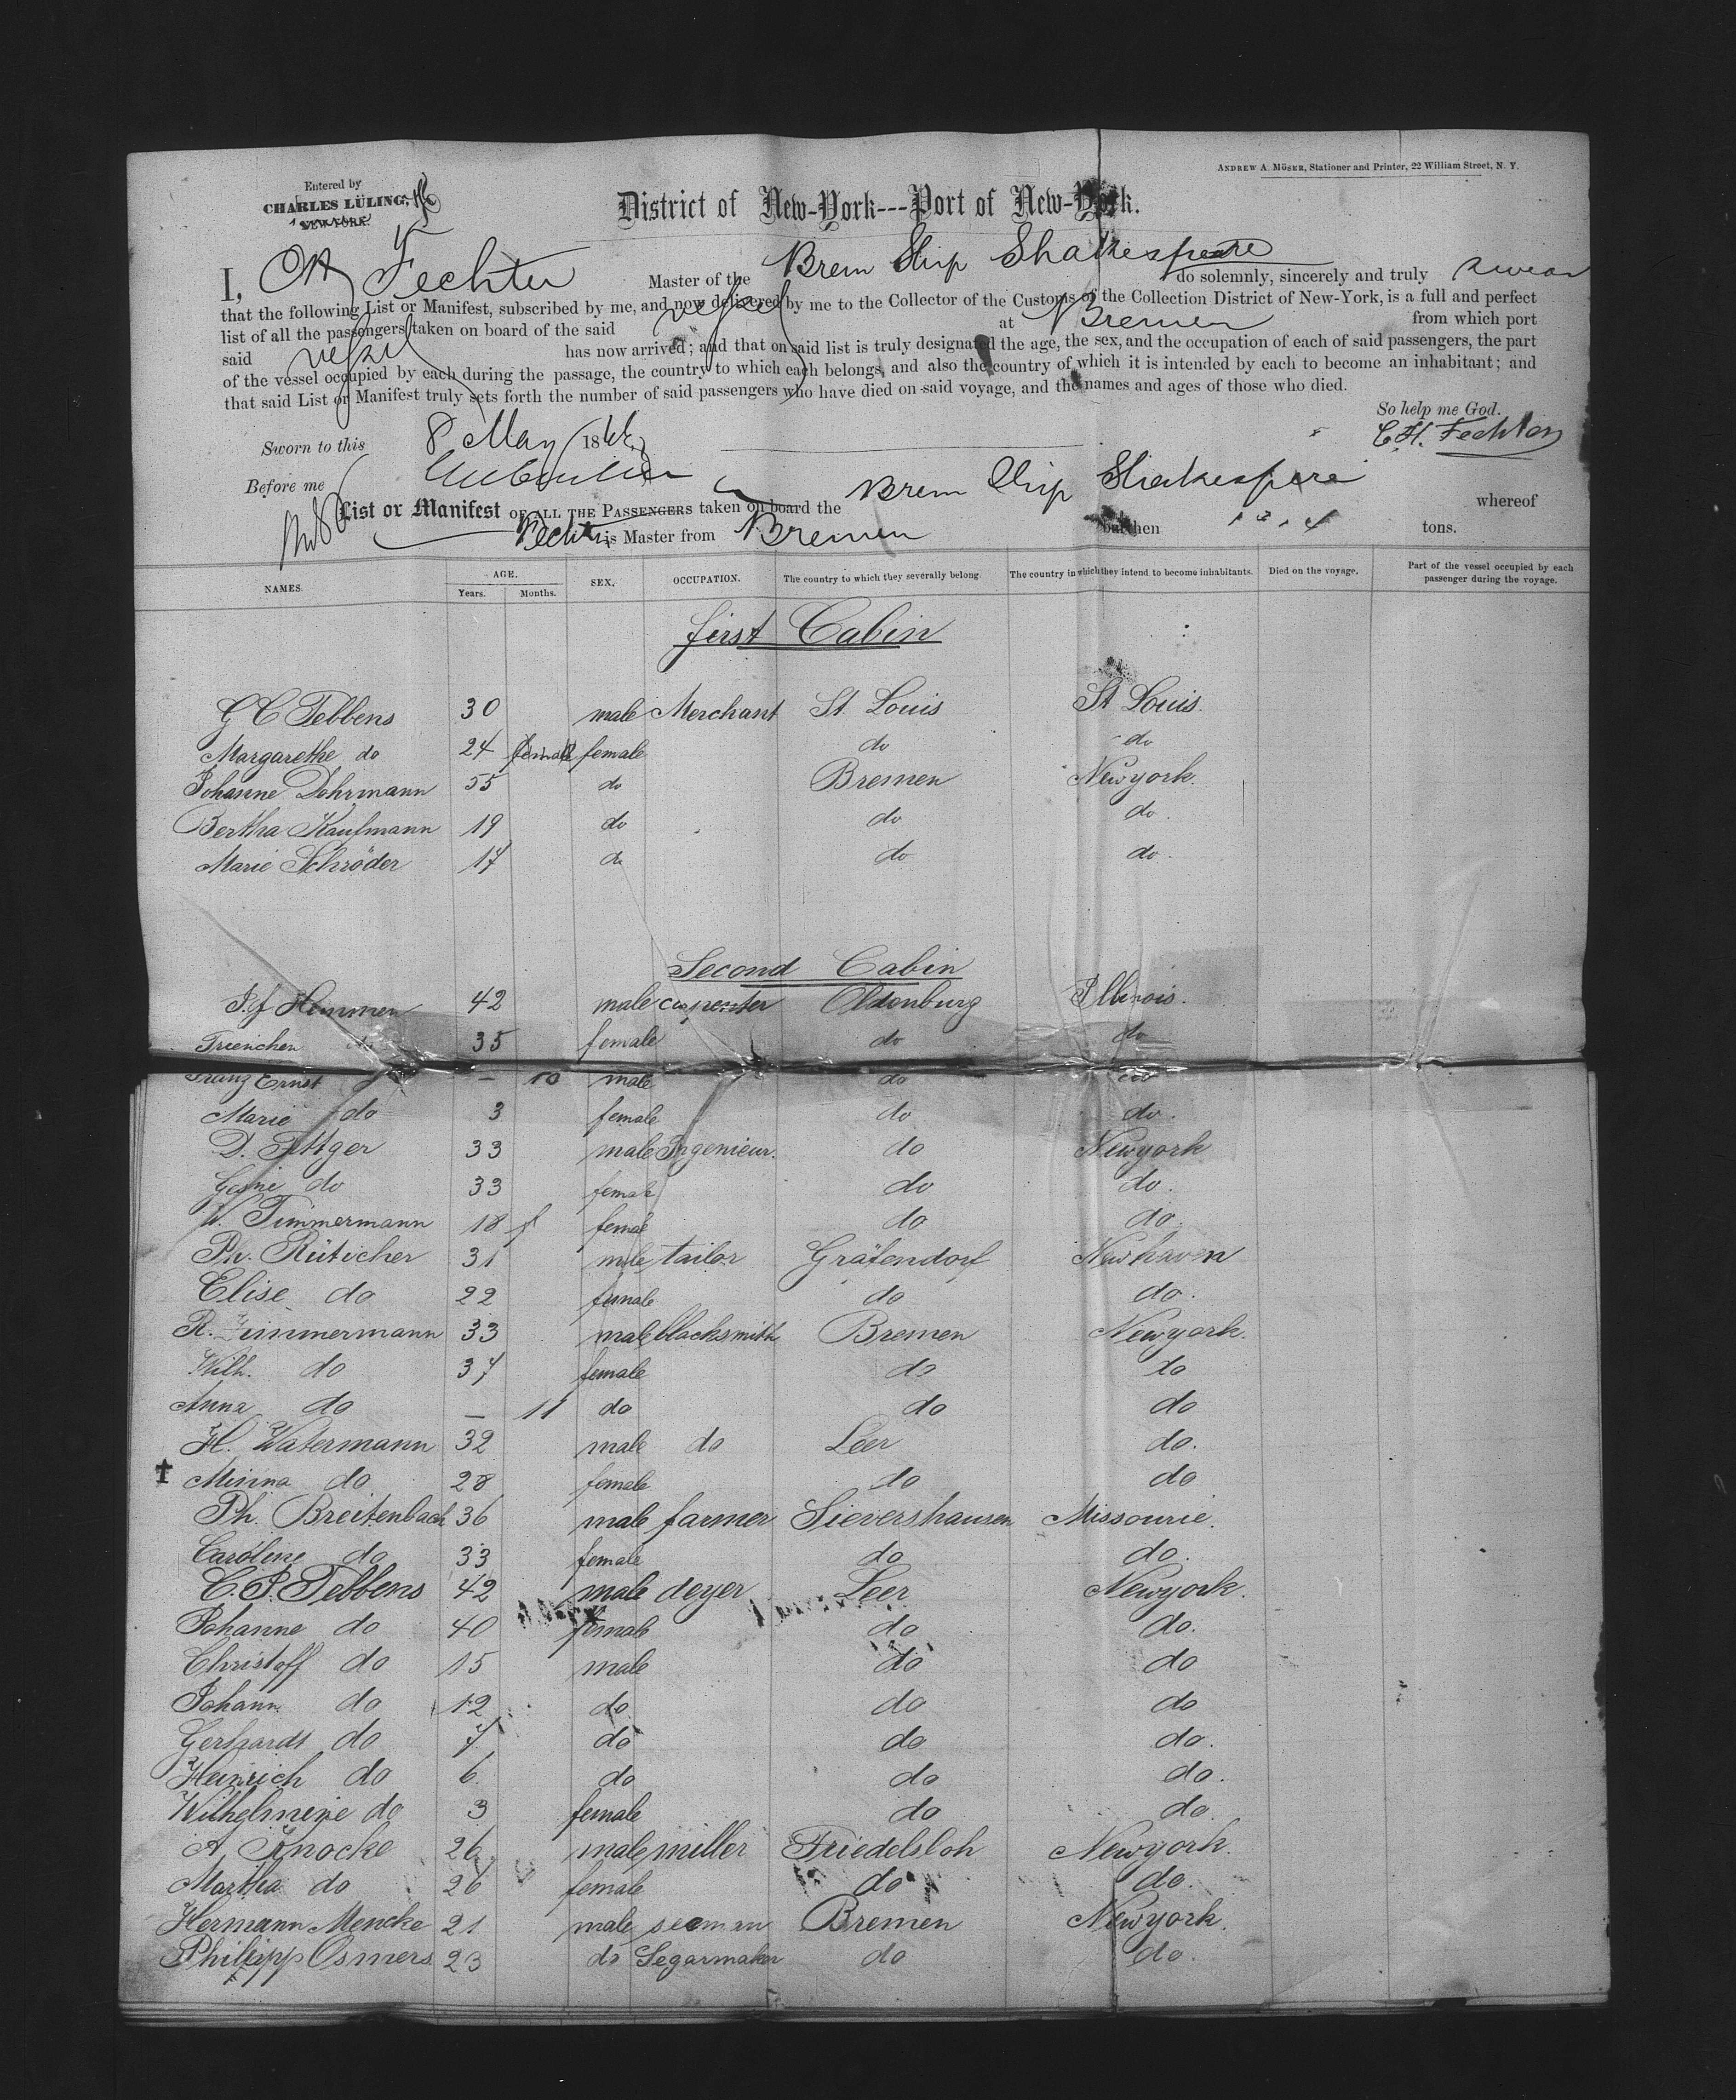 ANDREW A. MÖSER, Stationer and Printer, 22 William Street, N. Y.
Entered by
CHARLES LÜLING,
NEW-YORK.
District of New-York---Port of New-York.
I, Fechter Master of the Brem Ship Shakespeare do solemnly, sincerely and truly swear
that the following List or Manifest, subscribed by me, and now delivered by me to the Collector of the Customs of the Collection District of New-York, is a full and perfect
list of all the passengers taken on board of the said vessel at Bremen from which port
said vessel has now arrived; and that on said list is truly designated the age, the sex, and the occupation of each of said passengers, the part
of the vessel occupied by each during the passage, the country to which each belongs, and also the country of which it is intended by each to become an inhabitant; and
that said List or Manifest truly sets forth the number of said passengers who have died on said voyage, and the names and ages of those who died.
So help me God.
Sworn to this 8 May 18 C. H. Fechter
Before me
List or Manifest OF ALL THE PASSENGERS taken on board the Brem Ship Shakespere whereof
Fechter is Master from Bremen burthen tons.
NAMES. AGE. Years. Months. SEX. OCCUPATION. The country to which they severally belong The country in which they intend to become inhabitants. Died on the voyage. Part of the vessel occupied by each passenger during the voyage.
first Cabin
G C Tebbens 30 male Merchant St. Louis St Louis.
Margarethe do 24 female female do do
Johanne Dohrmann 55 do Bremen Newyork.
Bertha Kaufmann 19 do do do.
Marie Schröder 17 do do do.
Second Cabin
Hemmen 42 male carpenter Oldenburg Illinois.
Trienchen do 35 female do do
Franz Ernst — 10 male do do
Marie do 3 female do do.
D. 33 male Ingenieur. do Newyork
Gesine do 33 female do do.
W. Timmermann 18 f female do do.
Ph. Rüticher 31 male tailor Gräfendorf Newhaven
Elise do 22 female do do.
R. Zimmermann 33 male blacksmith Bremen Newyork.
Wilh. do 37 female do do
Anna do — 11 do do do
H. Watermann 32 male do Leer do.
† Minna do 28 female do do
Ph. Breitenbach 36 male farmer Sievershausen Missourie.
Caroline do 33 female do do.
C. P. Tebbens 42 male deyer Leer Newyork.
Johanne do 40 female do do.
Christoff do 15 male do do
Johann do 12 do do do
Gerhardt do 7 do do do.
Heinrich do 6 do do do.
Wilhelmine do 3 female do do.
A. Knocke 26 male miller Friedelsloh Newyork.
Martha do 26 female do do.
Hermann Mencke 21 male seeman Bremen Newyork.
Philipp Osmers 23 do Segarmaker do do.